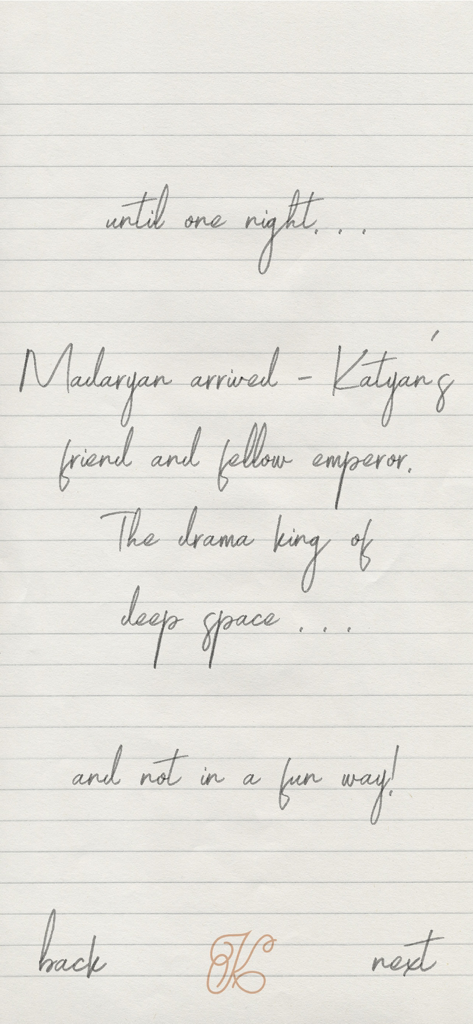 until one night. . .
Madaryan arrived - Katyan's
friend and fellow emperor.
The drama king of
deep space . . .
and not in a fun way!
back
K
next